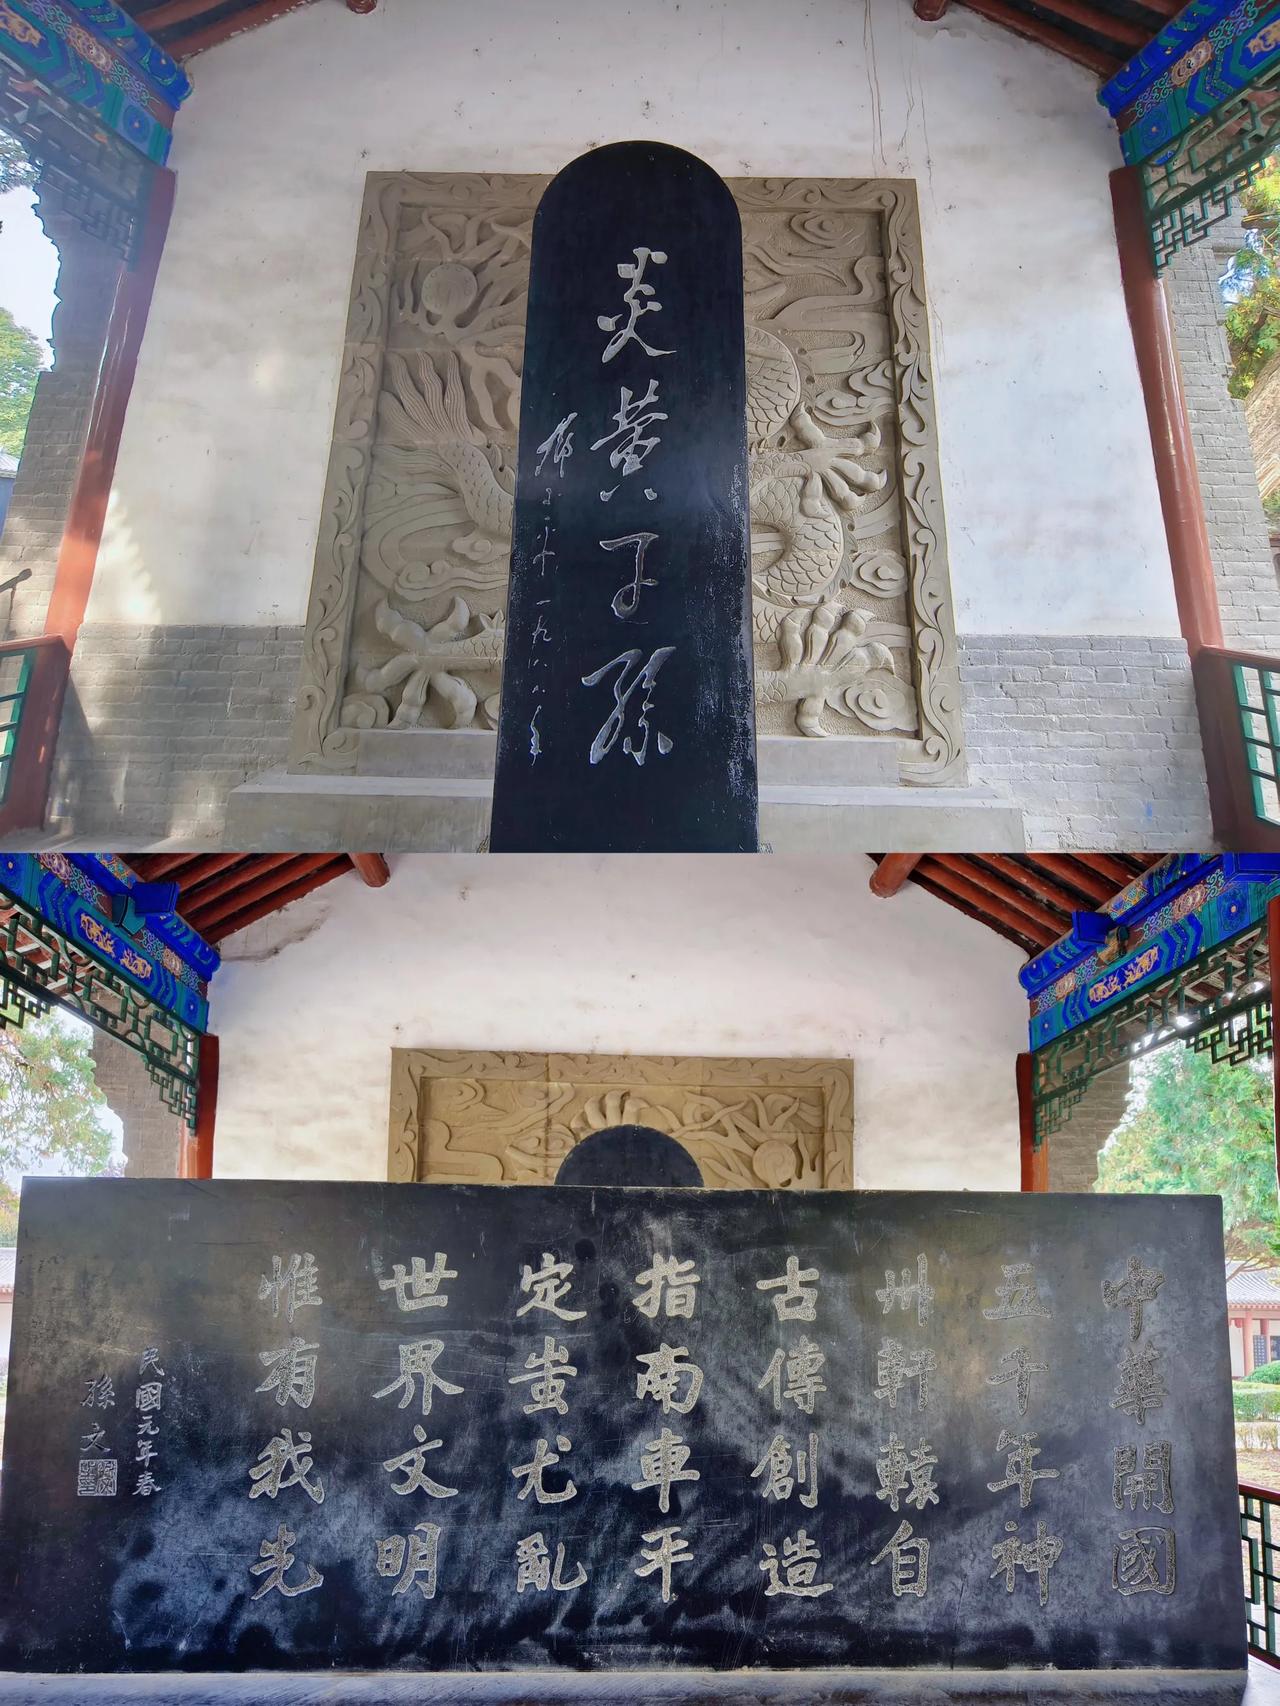 炎黄子孫
一九八八年
中華開國
五千年神
州軒轅自
古傳創造
指南車平
定蚩尤亂
世界文明
惟有我先
民國元年春
孫文